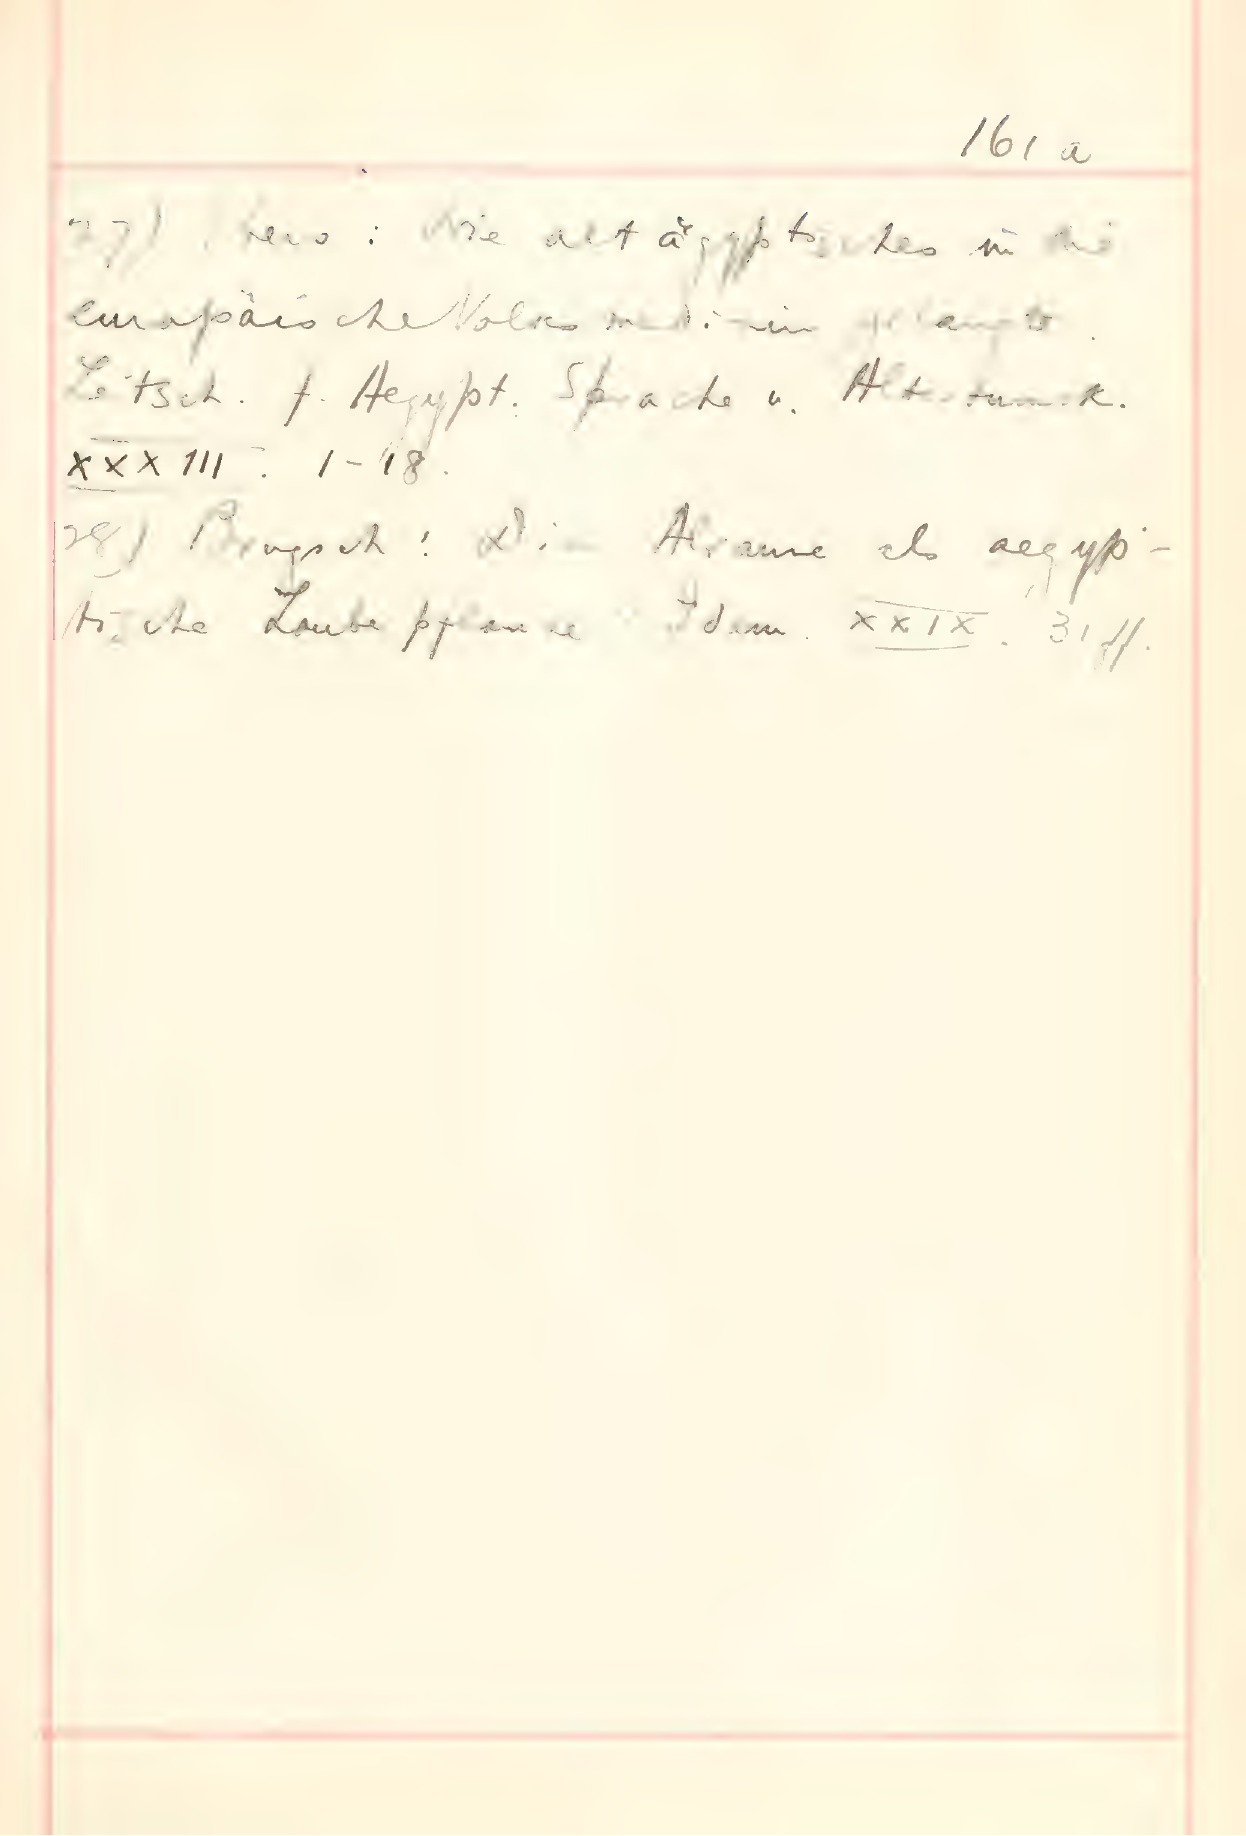 161 a
27) : Die altägyptisches in die
europäische Volksmedizin gelangte.
Zeitsch. f. Aegypt. Sprache u. Altertumsk.
XXXIII. 1-18.
28) Brugsch: Die Alraune als aegyp-
tische Zauberpflanze Idem. XXIX. 31 ff.